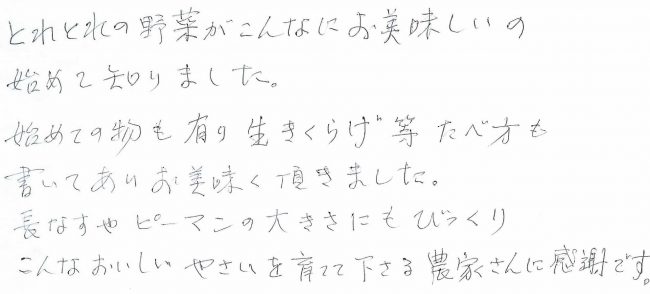 とれとれの野菜がこんなにお美味しいの
始めて知りました。
始めての物も有り生きくらげ等たべ方も
書いてありお美味く頂きました。
長なすやピーマンの大きさにもびっくり
こんなおいしいやさいを育てて下さる農家さんに感謝です。